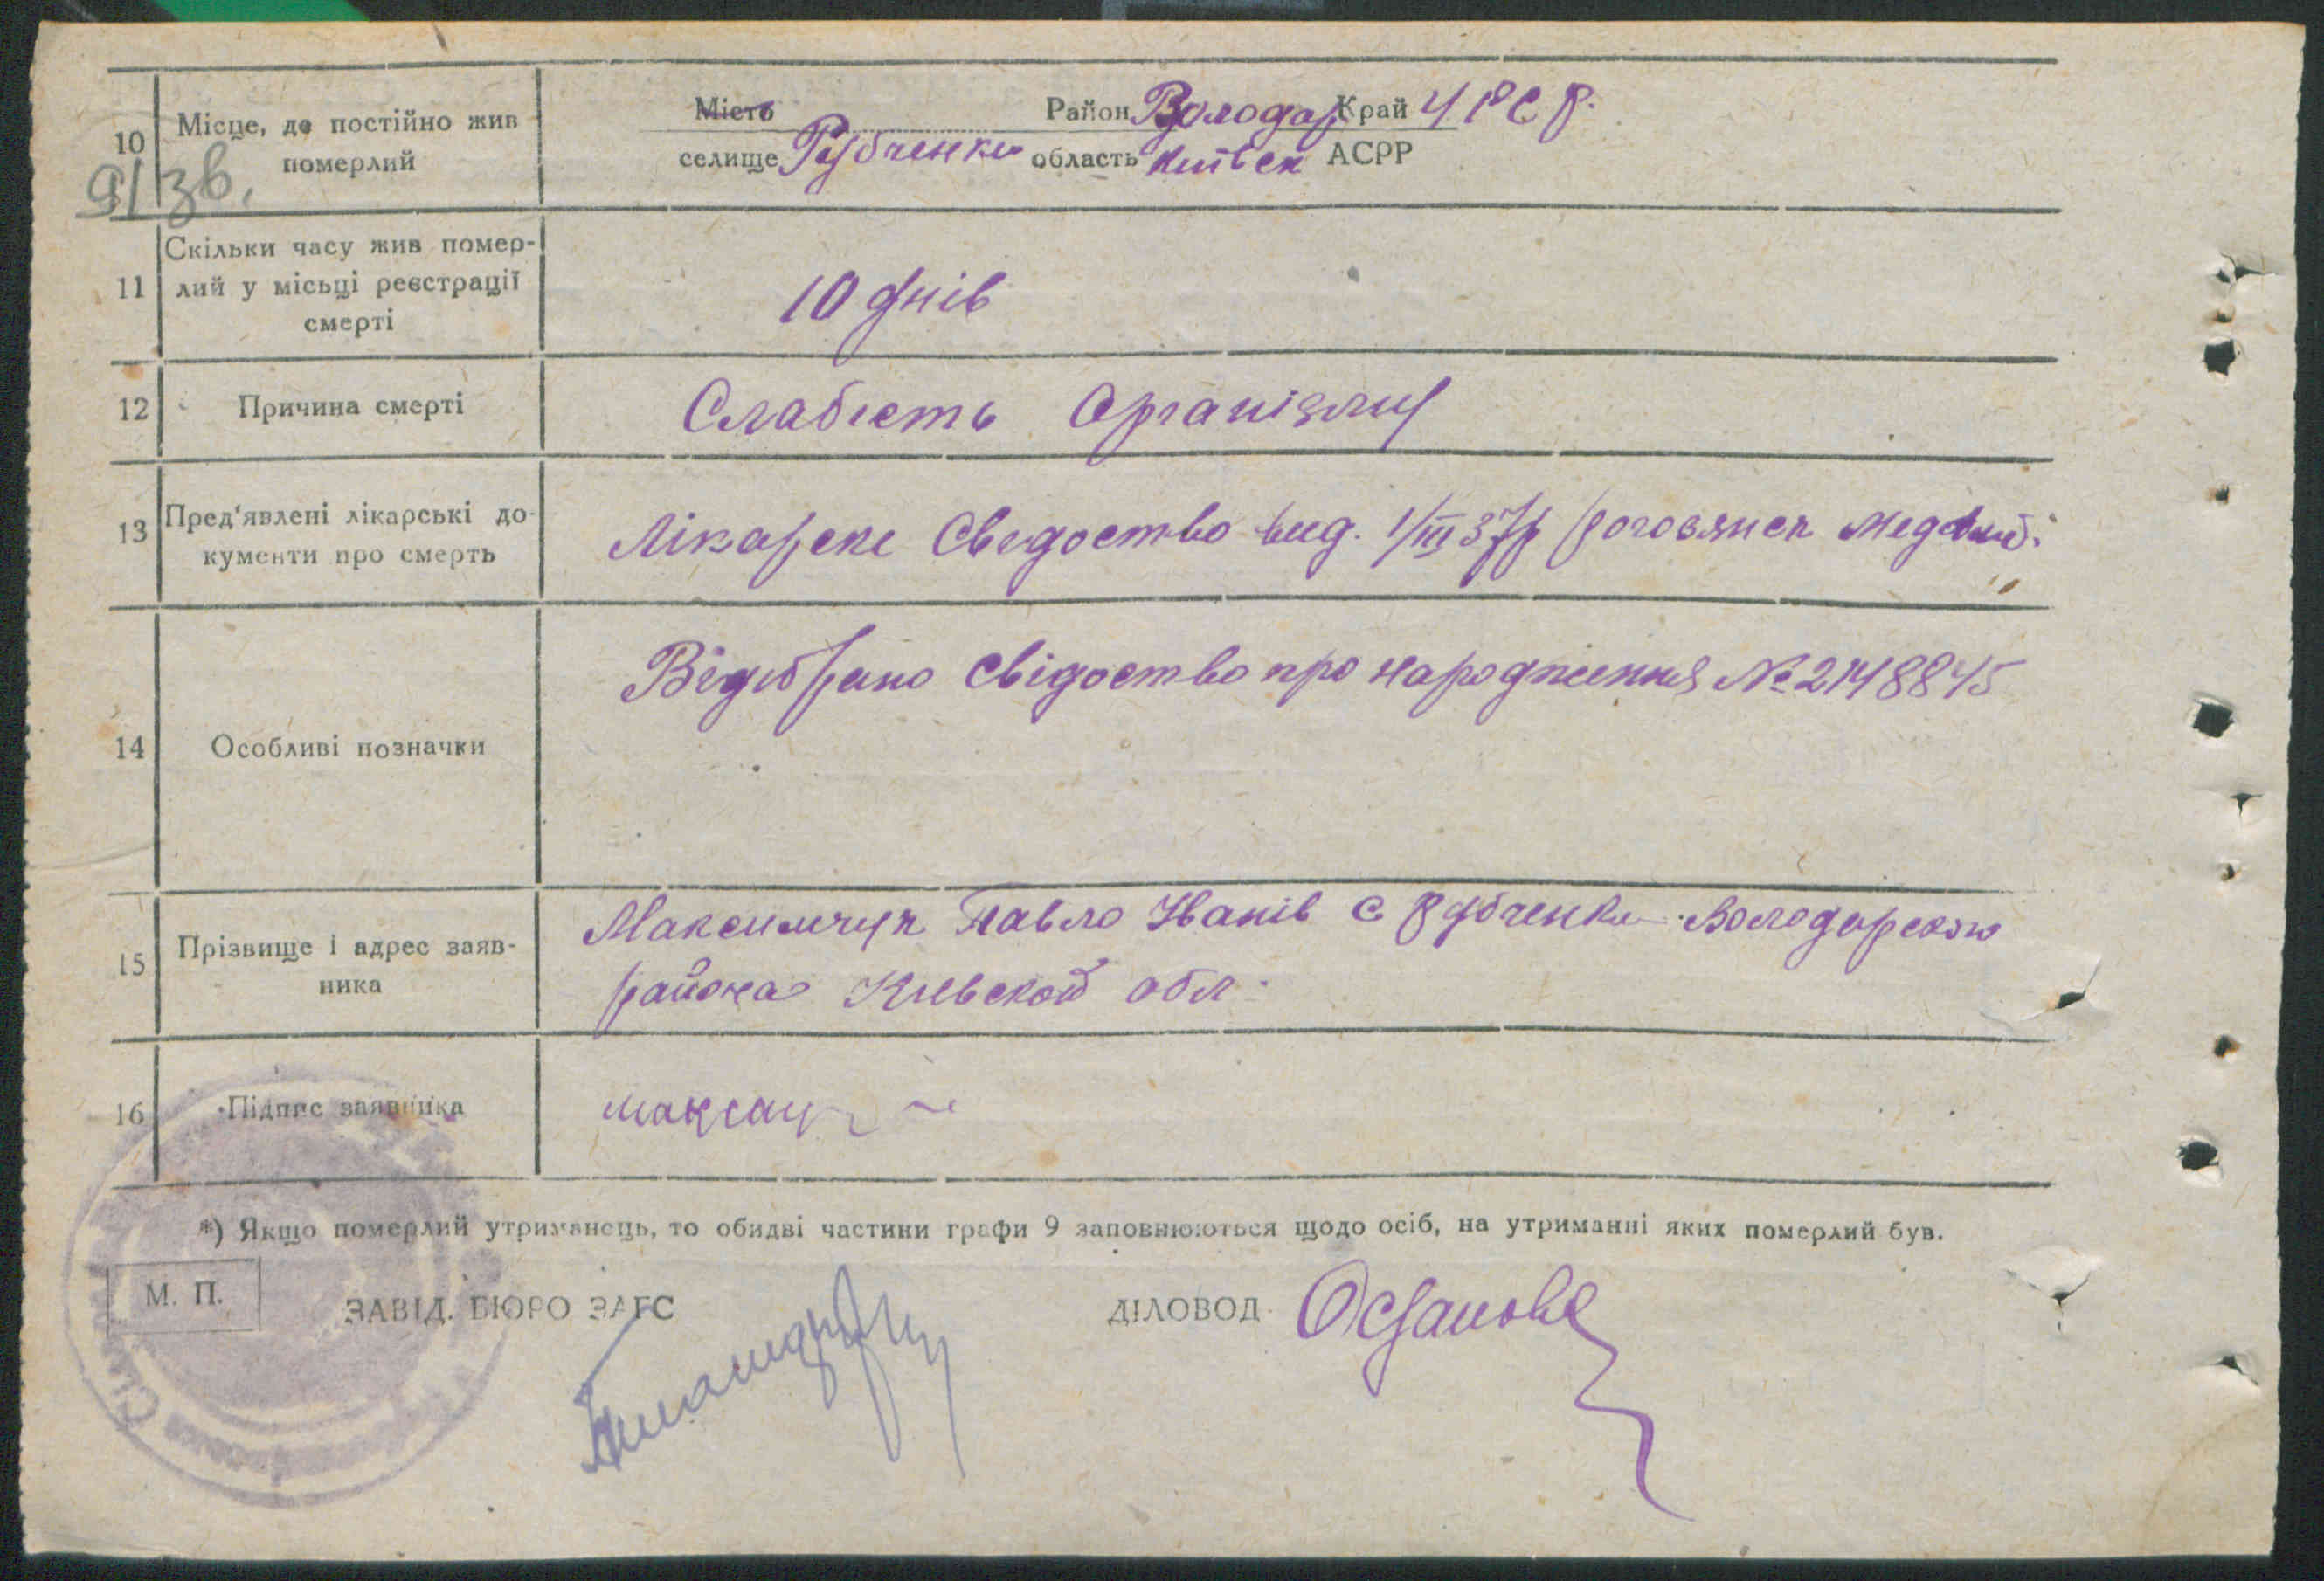 10 Місце, де постійно жив померлий
Місто Район Володар Край УРСР.
селище Рубченки область Київск АСРР
91 зв.
11 Скільки часу жив помер-
лий у місці реєстрації
смерті
10 днів
12 Причина смерті Слабість Организму
13 Пред'явлені лікарські до-
кументи про смерть
Лікарске Свідоство вид. 1/III 37р
14 Особливі позначки
Відібрано свідоство про народження № 2148845
15 Прізвище і адрес заяв-
ника
Максимчук Павло Іванів с Рубченки Володарского
района Киевской обл.
16 Підпис заявника
*) Якщо померлий утриманець, то обидві частини графи 9 заповнюються щодо осіб, на утриманні яких померлий був.
М. П.
ЗАВІД. БЮРО ЗАГС ДІЛОВОД